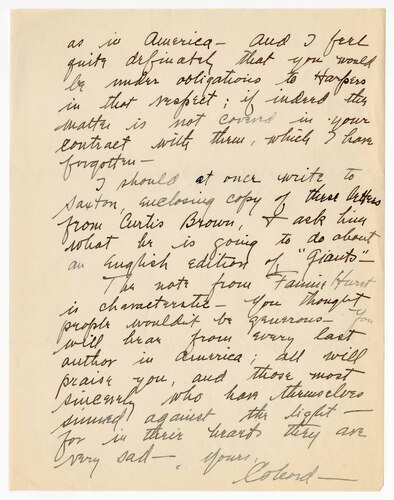 as in America — And I feel
quite definately that you would
be under obligations to Harpers
in that respect; if indeed the
matter is not covered in your
contract with them, which I have
forgotten —
I should at once write to
Saxton, enclosing copy of these letters
from Curtis Brown, & ask him
what he is going to do about
an English edition of "Giants" —
The note from Fannie Hurst
is characteristic — You thought
people wouldn't be generous — You
will hear from every last
author in America; all will
praise you, and those most
sincerely who have themselves
sinned against the light —
for in their hearts they are
very sad — Yours,
Colcord —